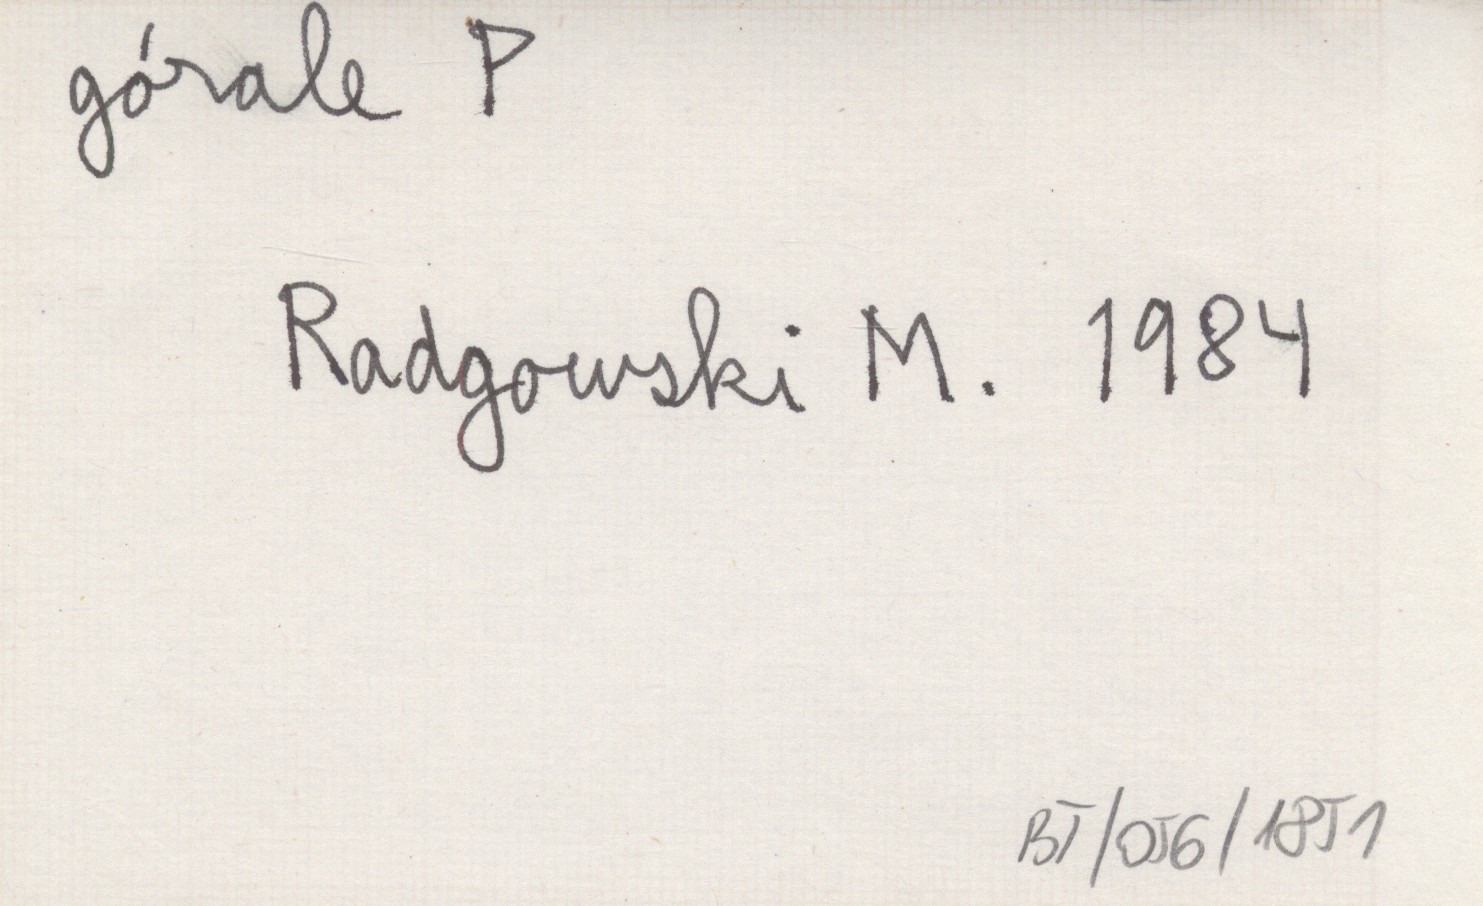 górale P
Radgowski M. 1984
BJ/056/1851